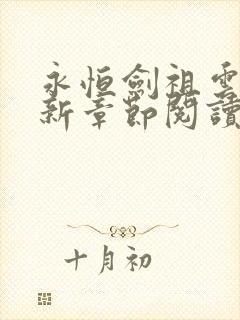 永恒劍祖雲
新章節閱讀
十月初